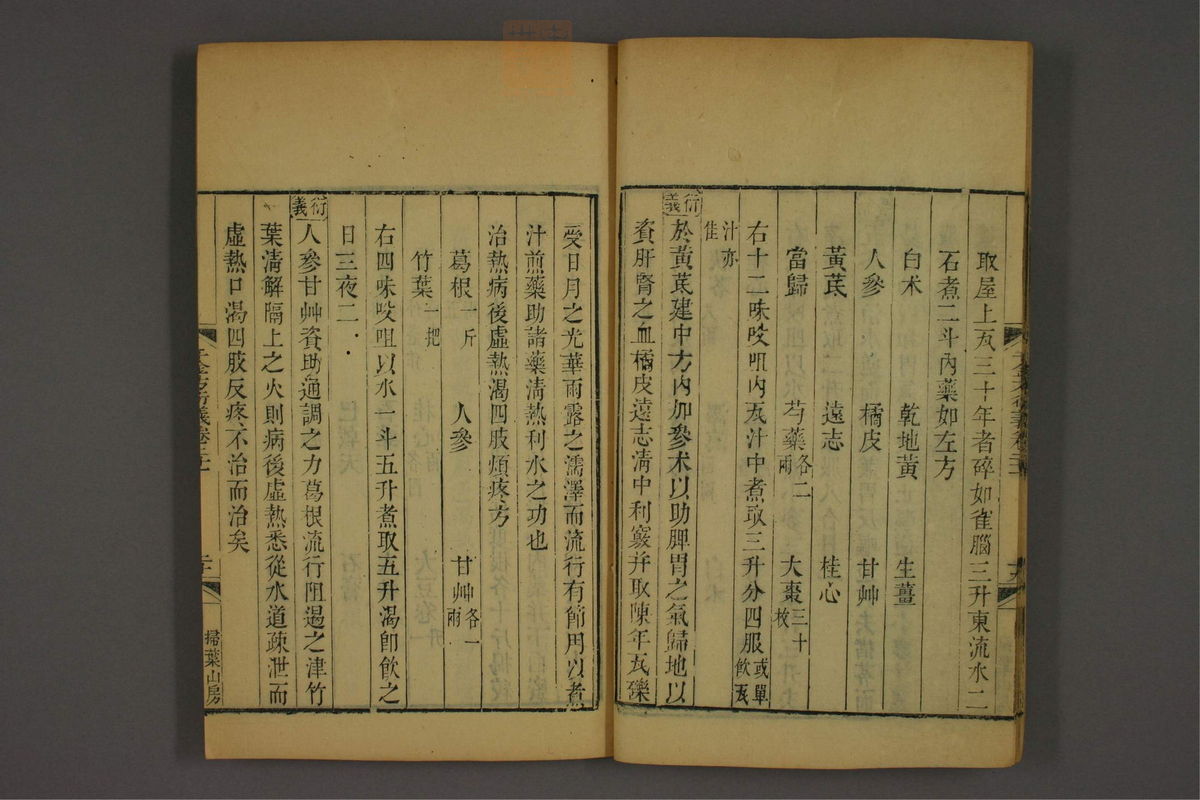 取屋上瓦三十年者碎如雀腦三升東流水二
石煮二斗內藥如左方
白朮 乾地黃 生薑
人參 橘皮 甘艸
黃芪 遠志 桂心
當歸 芍藥各二兩 大棗三十枚
右十二味㕮咀內瓦汁中煮取三升分四服或單飲瓦
汁亦佳
衍義
於黃芪建中方內加參朮以助脾胃之氣歸地以
資肝腎之血橘皮遠志清中利竅幷取陳年瓦礫
受日月之光華雨露之濡澤而流行有節用以煮
汁煎藥助諸藥淸熱利水之功也
治熱病後虛熱渴四肢煩疼方
葛根一斤 人參 甘艸各一兩
竹葉一把
右四味㕮咀以水一斗五升煮取五升渴卽飲之
日三夜二
衍義
人參甘艸資助通調之力葛根流行阻遏之津竹
葉淸解隔上之火則病後虛熱悉從水道疎泄而
虛熱口渴四肢反疼不治而治矣
掃葉山房